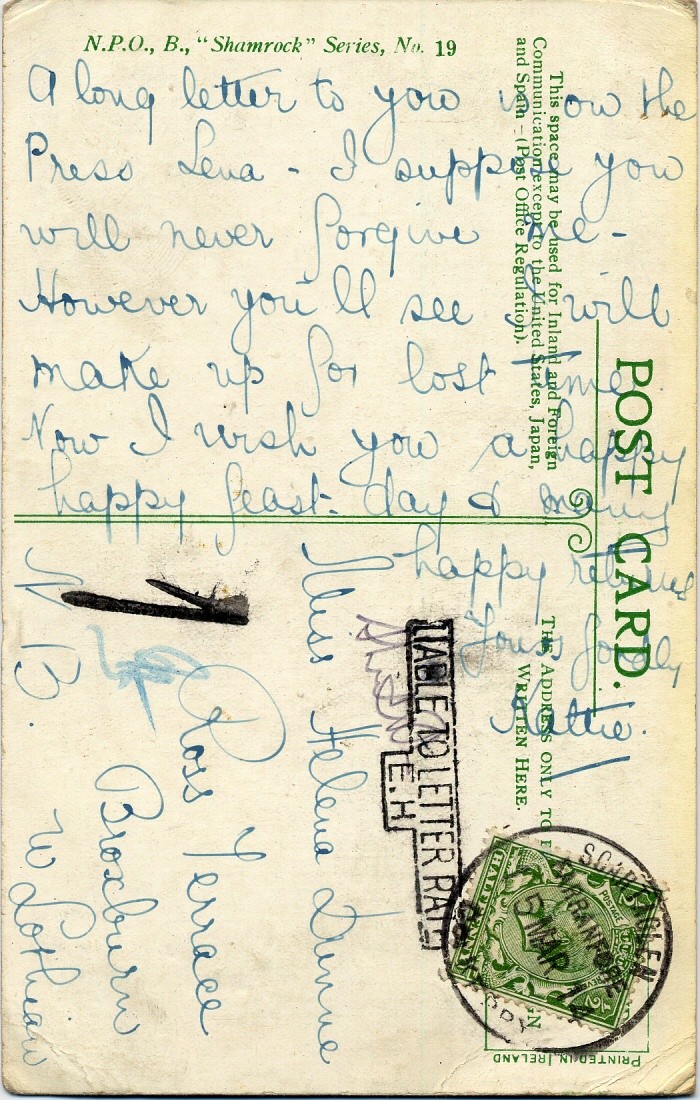 N.P.O., B., "Shamrock" Series, No. 19
A long letter to you is on the
Press Lena - I suppose you
will never forgive me -
However you'll see I will
make up for lost time
Now I wish you a happy
happy feast-day & many
happy returns
Yours fondly
Kattie.
This space may be used for Inland and Foreign
Communication except to the United States, Japan,
and Spain—(Post Office Regulation).
POST CARD.
THE ADDRESS ONLY TO
WRITTEN HERE.
Miss Helena Dunne
Ross Terrace
Broxburn
W Lothian
N. B.
LIABLE TO LETTER RATE
E.H
POSTAGE
15 MAR 14
PRINTED IN IRELAND